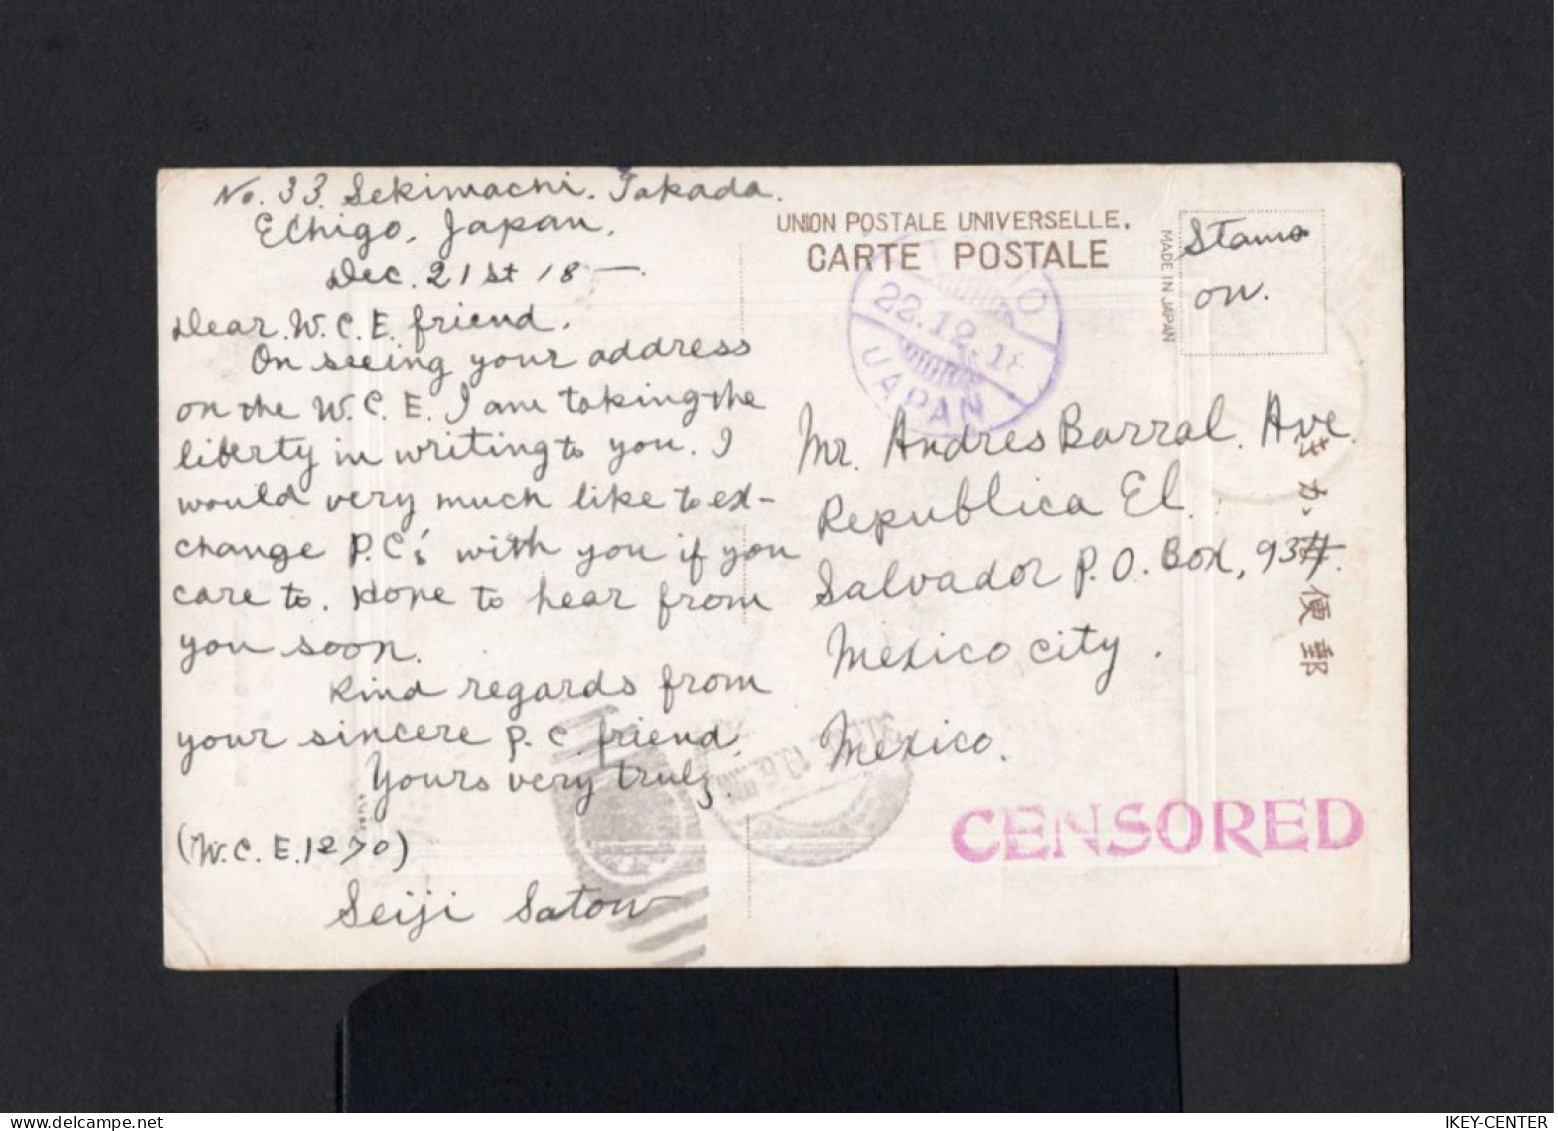 No. 33. Sekimachi. Takada.
Echigo. Japan.
Dec. 21st 18—.
Dear W.C.E. friend.
On seeing your address
on the W.C.E. I am taking the
liberty in writing to you. I
would very much like to ex-
change P.C's with you if you
care to. Hope to hear from
you soon.
Kind regards from
your sincere P.C. friend.
Yours very truly
(W.C.E. 1270)
Seiji Satow
UNION POSTALE UNIVERSELLE.
CARTE POSTALE
MADE IN JAPAN
Stamp
on.
22.12.18
JAPAN
Mr. Andres Barral. Ave.
Republica El.
Salvador P.O. Box, 93
Mexico city.
Mexico.
郵便はかき
CENSORED
IKEY-CENTER